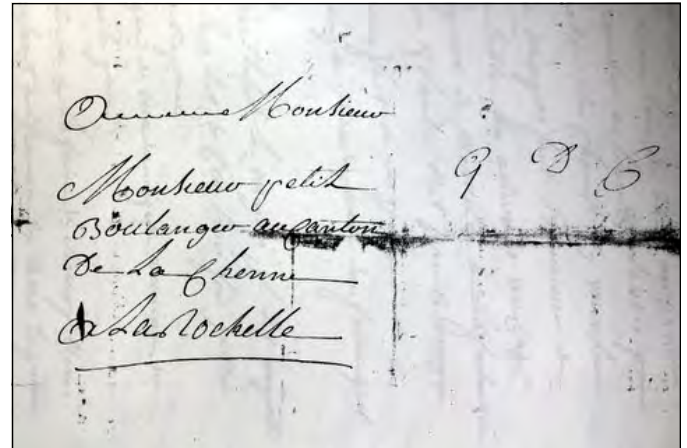 Monsieur
Monsieur petit
Boulanger au canton
De La Chenne
a La Rochelle
G D C